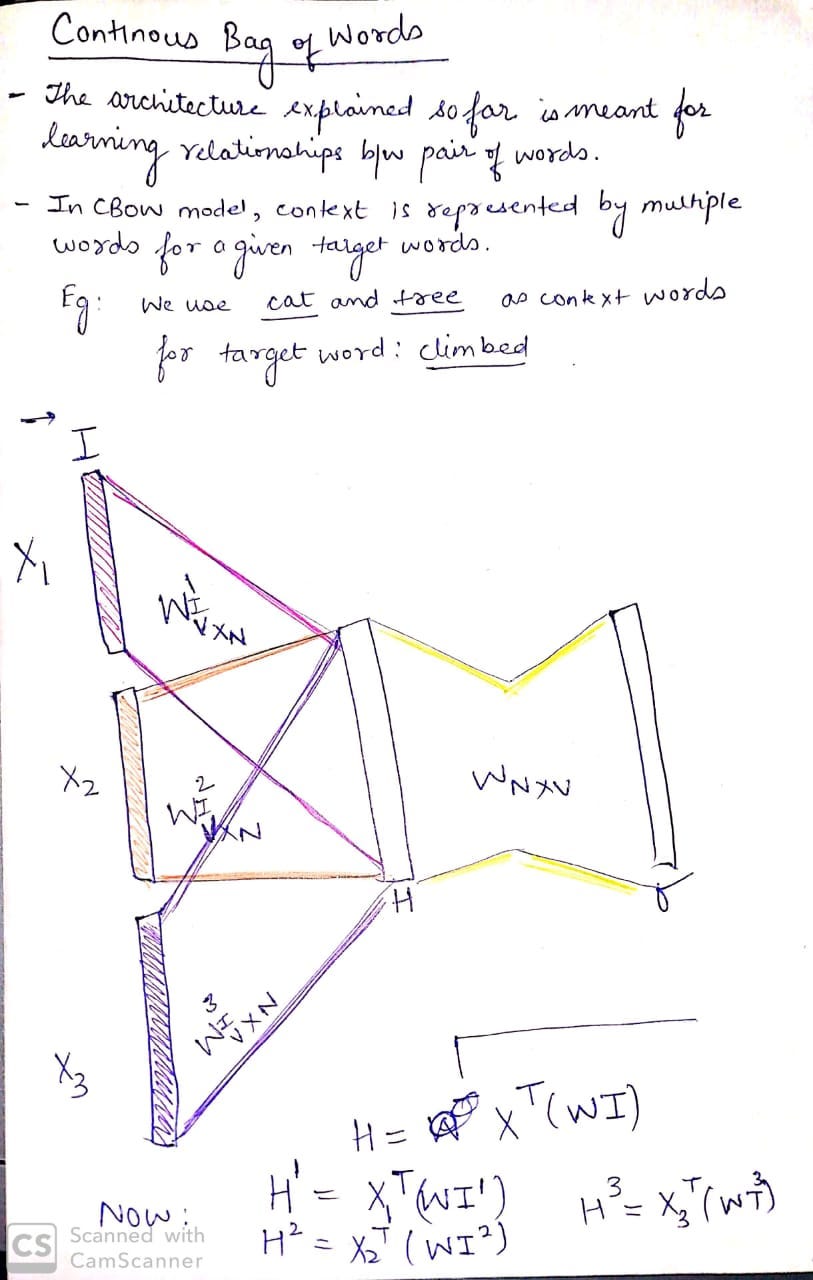 Continous Bag of Words
- The architecture explained so far is meant for
learning relationships b/w pair of words.
- In CBOW model, context is represented by multiple
words for a given target words.
Eg: We use cat and tree as context words
for target word: climbed
→ I
X₁
WI¹ VXN
X₂
WI² VXN
WNXV
H
O
X₃
WI³ VXN
H = Xᵀ(WI)
H¹ = X₁ᵀ(WI¹) H³ = X₃ᵀ(WI³)
Now:
H² = X₂ᵀ(WI²)
CS Scanned with
CamScanner